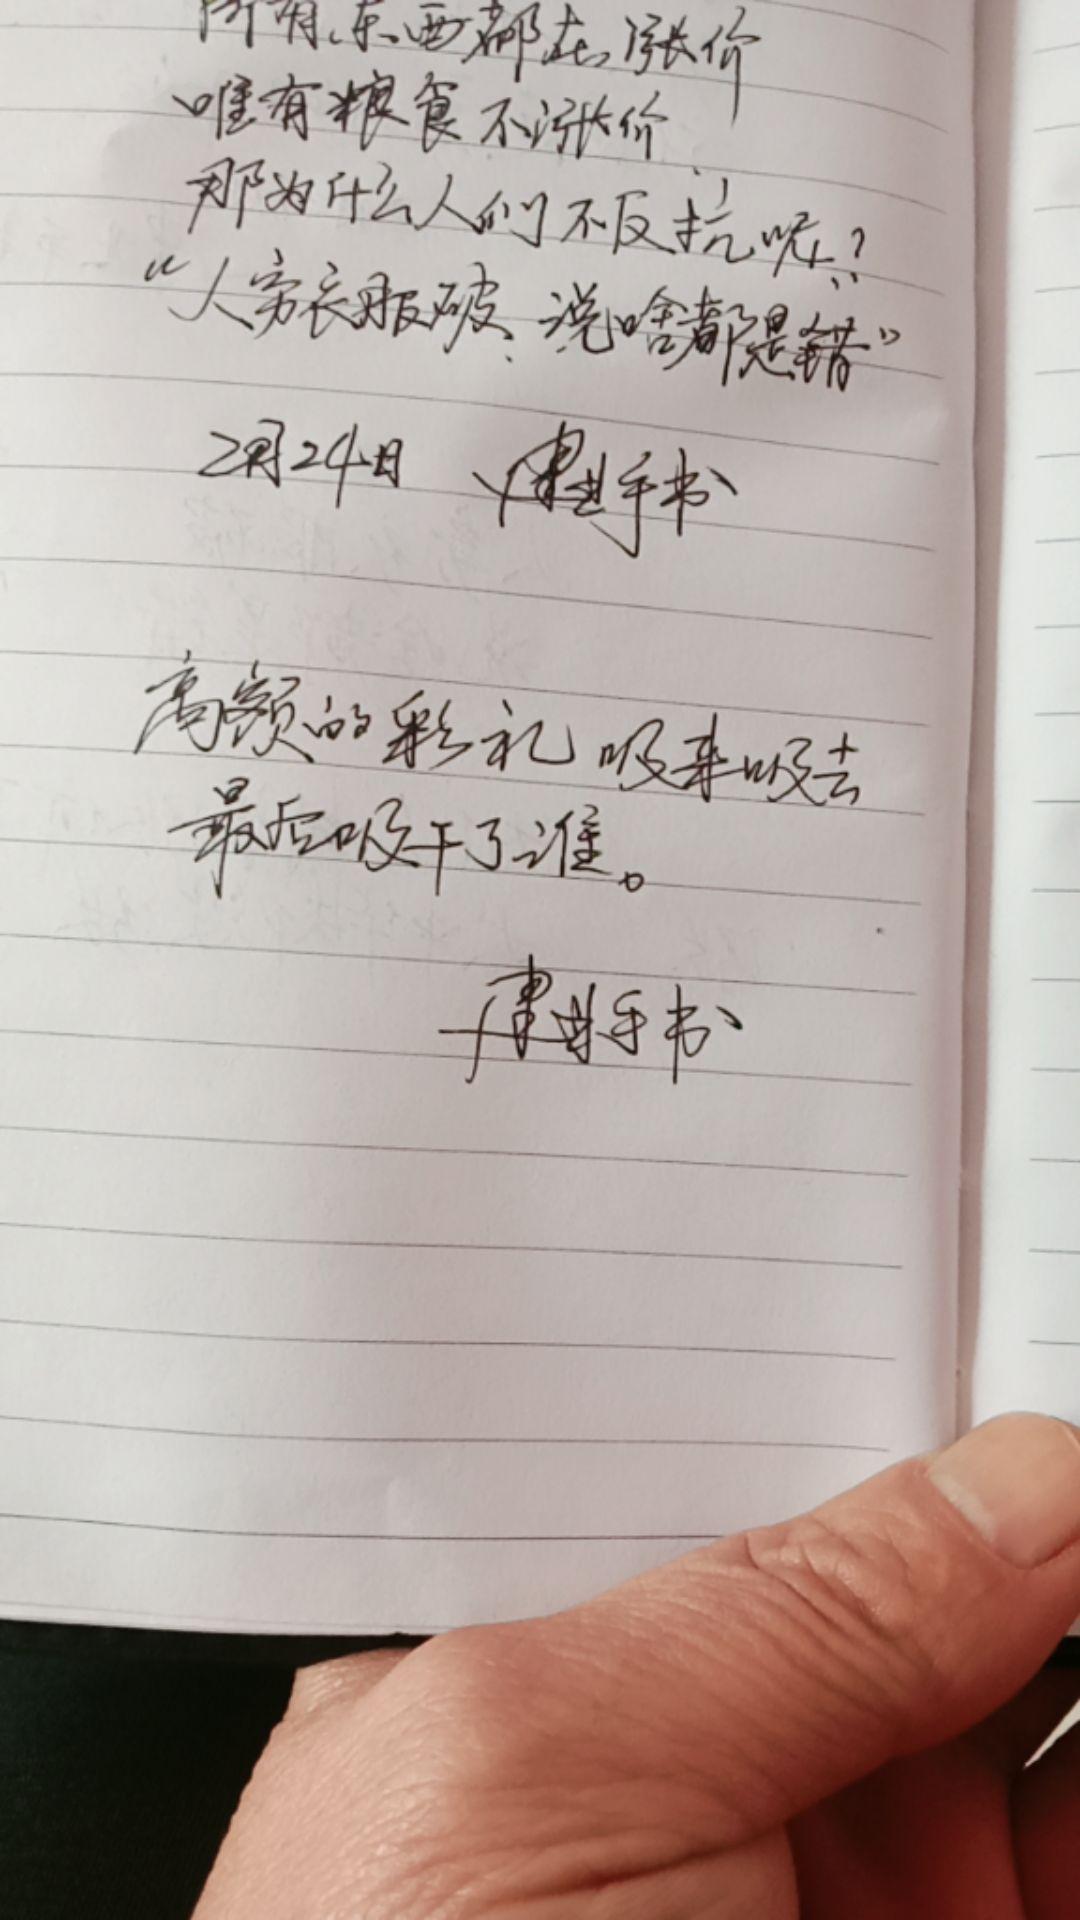 所有东西都在涨价
唯有粮食不涨价
那为什么人们不反抗呢?
“人穷衣服破、说啥都是错”
2月24日 建业手书
高额的彩礼 吸来吸去
最后吸干了谁。
建业手书